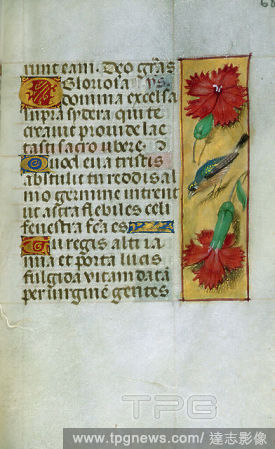 68
runt eam. Deo gr̄as
Gloriosa
domina excelsa
supra sydera qui te
creauit prouide lac
tasti sacro ubere.
Quod eua tristis
abstulit tu reddis al
mo germine intrent
ut astra flebiles celi
fenestra fc̄a es
Tu regis alti ia
nua et porta lucis
fulgida uitam datā
per uirginē gentes
TPG
www.tpgnews.com/ 達志影像